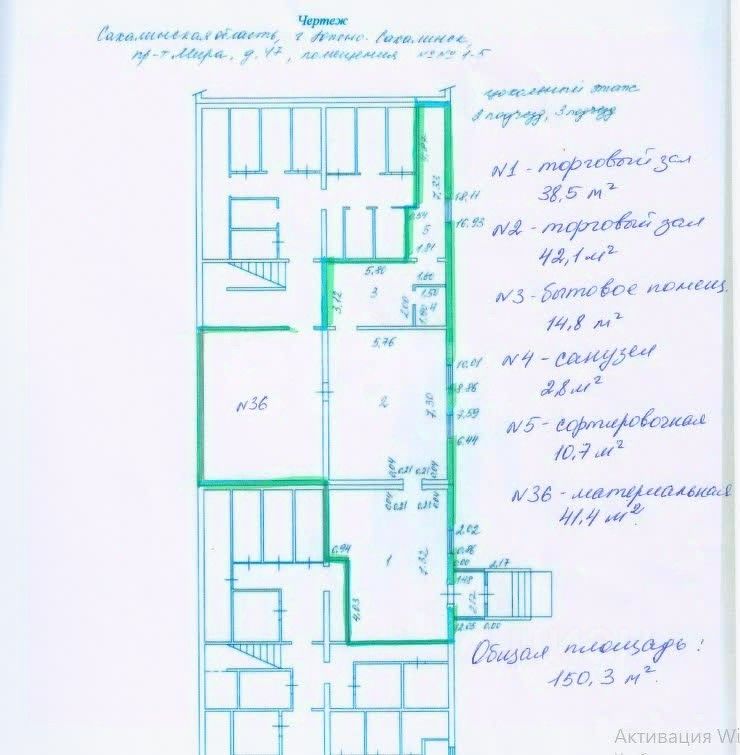 Чертеж
Сахалинская область, г. Южно-Сахалинск,
пр-т Мира, д. 47, помещения №№ 1-5
цокольный этаж
2 подъезд, 3 подъезд
N1 - торговый зал
38,5 м²
N2 - торговый зал
42,1 м²
N3 - бытовое помещ.
14,8 м²
N4 - санузел
2,8 м²
N5 - сортировочная
10,7 м²
N36 - материальная
41,4 м²
Общая площадь:
150,3 м²
7,33
18,11
16,93
0,54
5
1,81
5,80
1,60
3
3,12
2,00
1,50
4
1,90
5,76
10,01
8,86
N36
2
7,30
7,59
6,44
0,04
0,21
0,21
0,04
0,04
0,21
0,21
0,04
2,02
0,86
0,94
1
7,32
0,00
2,17
1,48
2,12
4,03
12,03
0,00
Активация Wi